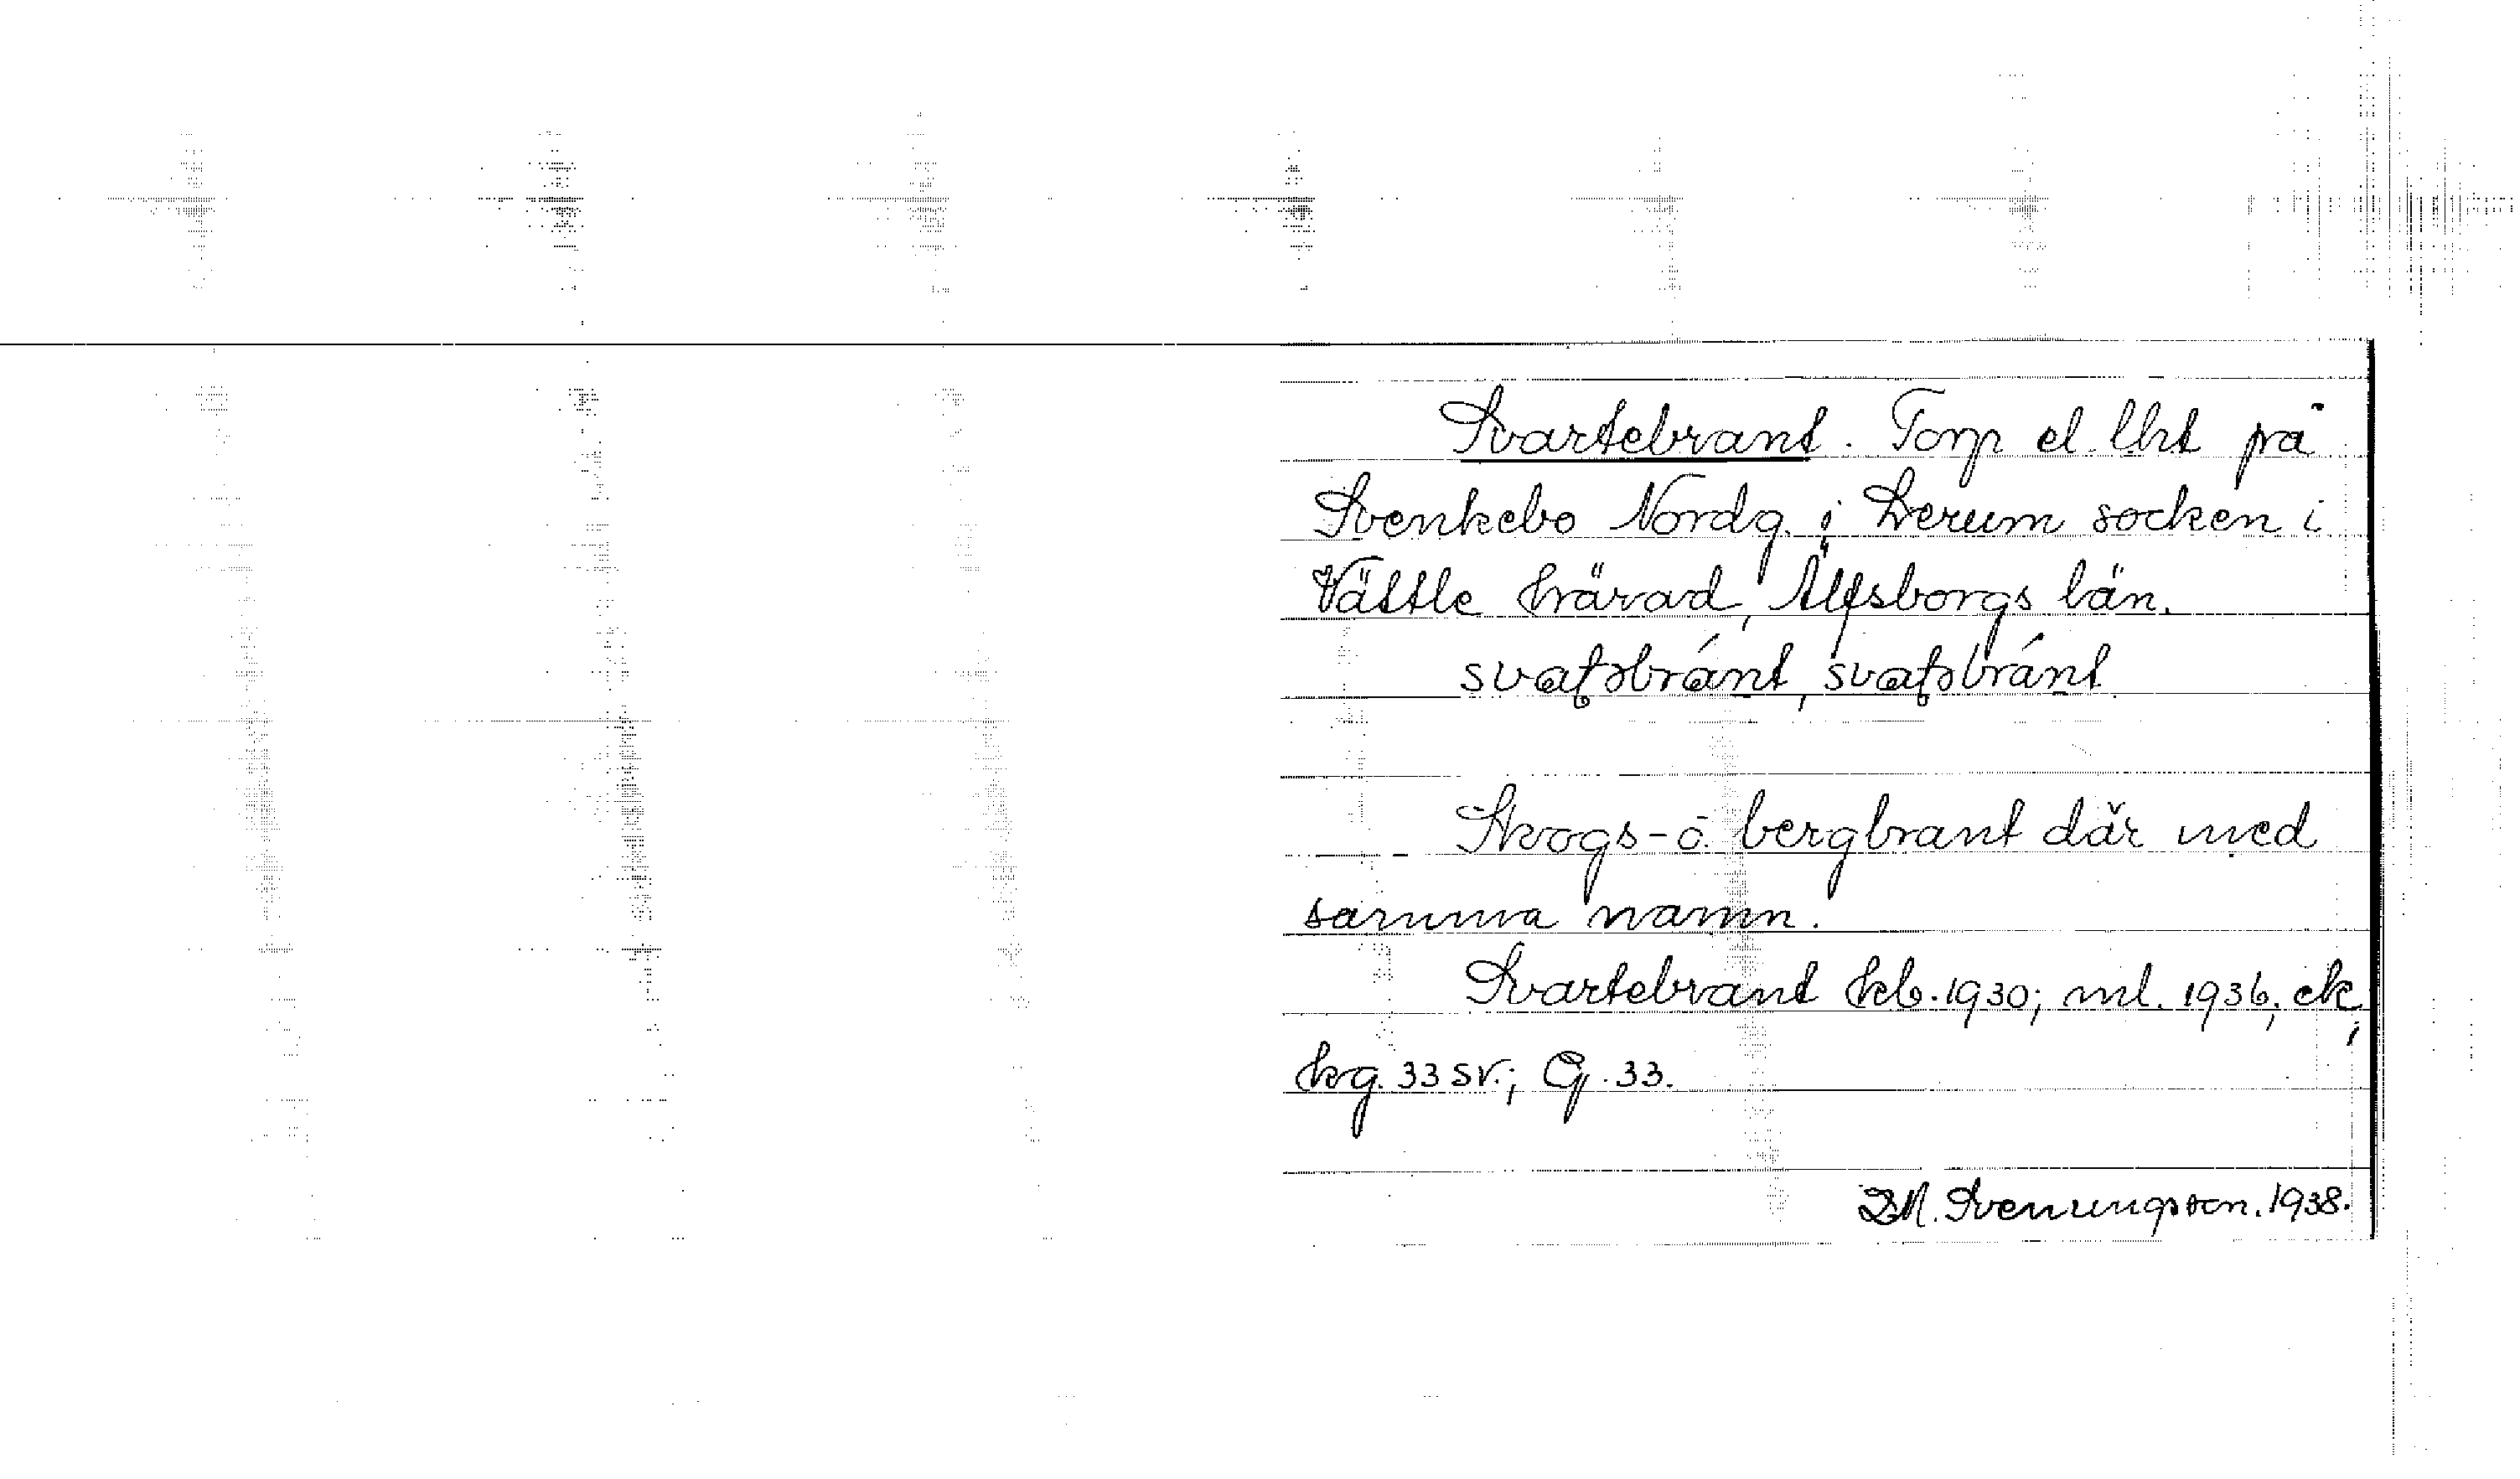 Svartebrant. Torp el. lht på
Svenkebo Nordg. i Lerum socken i
Vättle härad, Älfsborgs län.
Skogs- o. bergbrant där med
samma namn.
Svartebrant kb. 1930; ml. 1936, ek,
hrg. 33 sv.; G. 33.
Svenungsson. 1938.